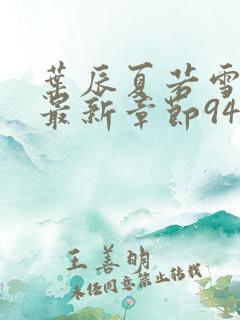 葉辰夏若雪
最新章節94
王善明
未经同意禁止转载